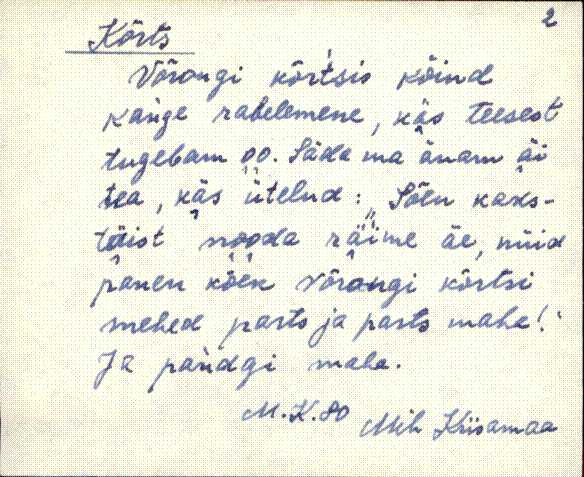 2
Kõrts
Võrangi kõrtsis kõind
kange rabelemene, käs teesest
tugebam oo. Säda ma änam äi
tea, käs ütelud: „Sõen kaks-
tõist nooda räime äe, nüid
panen kõek Võrangi kõrtsi
mehed parts ja parts maha!“
Ja pandgi maha.
M.K. 80 Mih Kiisamaa